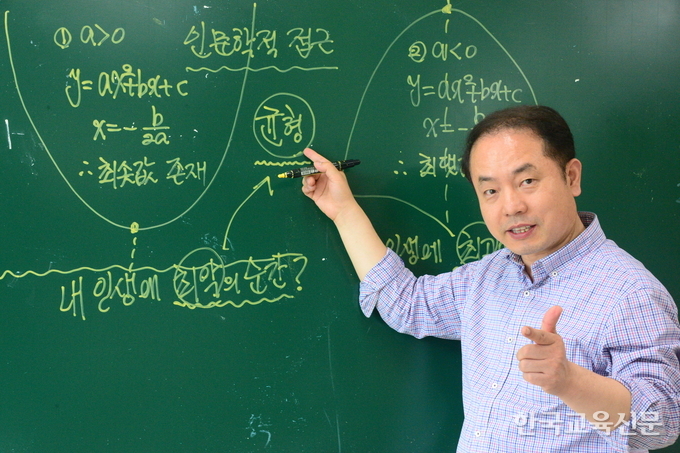 ① a>0
y=ax²+bx+c
x=-b/2a
∴ 최솟값 존재
인문학적 접근
균형
② a<0
y=ax²+bx+c
x=-
∴ 최댓
내 인생에 최악의 순간?
인생에 최고
한국교육신문